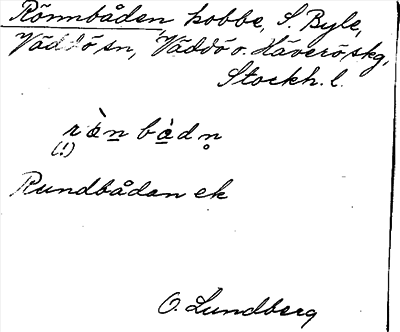 Rönnbåden, kobbe, S. Byle,
Väddö sn, Väddö o. Häverö skg,
Stockh. l.
rὰn bὰdn̥
(!)
Rundbådan ek
O. Lundberg